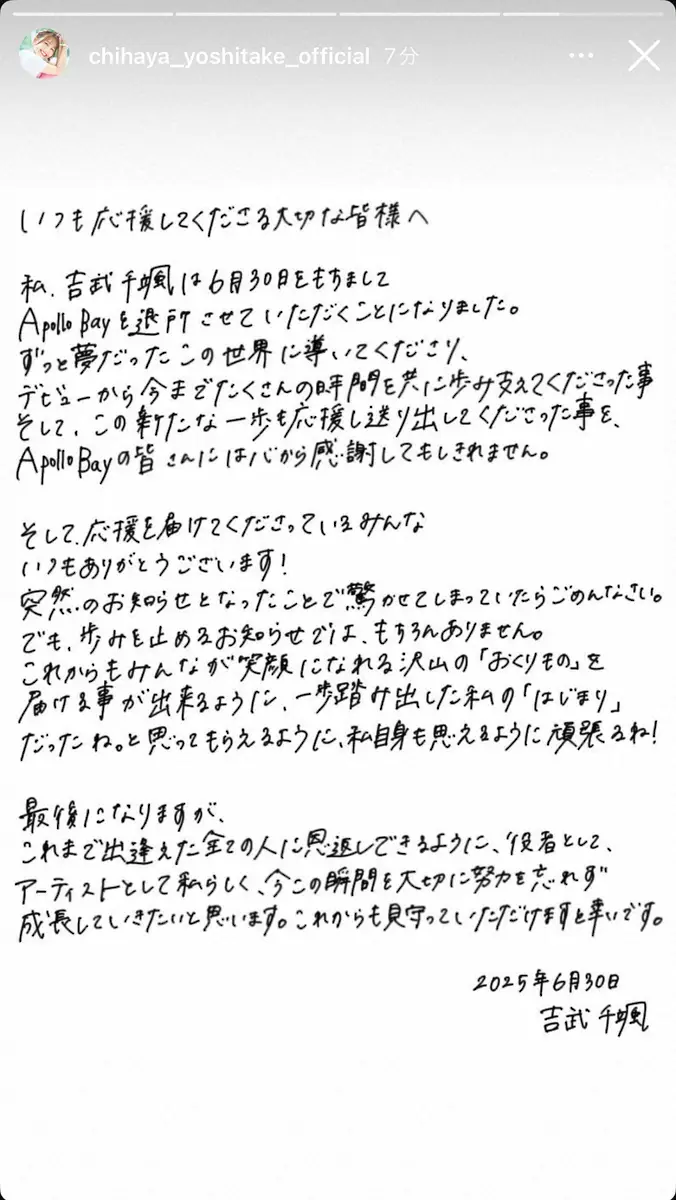 chihaya_yoshitake_official 7分
いつも応援してくださる大切な皆様へ
私、吉武千颯は6月30日をもちまして
Apollo Bayを退所させていただくことになりました。
ずっと夢だったこの世界に導いてくださり、
デビューから今までたくさんの時間を共に歩み支えてくださった事
そして、この新たな一歩も応援し送り出してくださった事を、
Apollo Bayの皆さんには心から感謝してもしきれません。
そして、応援を届けてくださっているみんな
いつもありがとうございます!
突然のお知らせとなったことで驚かせてしまっていたらごめんなさい。
でも、歩みを止めるお知らせでは、もちろんありません。
これからもみんなが笑顔になれる沢山の「おくりもの」を
届ける事が出来るように、一歩踏み出した私の「はじまり」
だったね。と思ってもらえるように、私自身も思えるように頑張るね!
最後になりますが、
これまで出逢えた全ての人に恩返しできるように、役者として、
アーティストとして私らしく、今この瞬間を大切に努力を忘れず
成長していきたいと思います。これからも見守っていただけますと幸いです。
2025年6月30日
吉武千颯